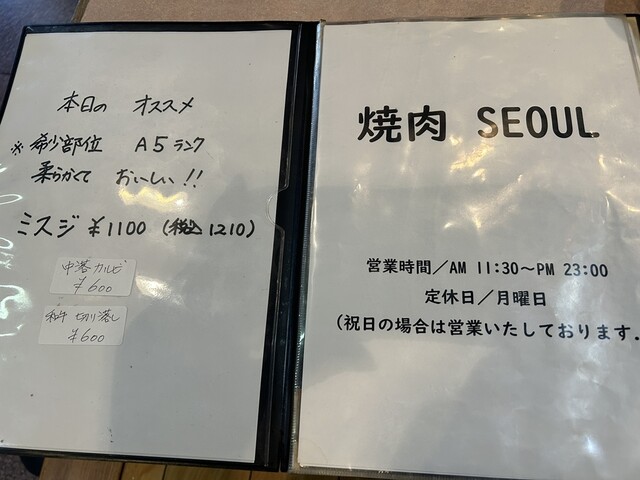 本日の オススメ
※希少部位 A5ランク
柔らかくて おいしい!!
ミスジ ¥1100 (税込1210)
中落カルビ
¥600
和牛 切り落し
¥600
焼肉 SEOUL
営業時間／AM 11:30～PM 23:00
定休日／月曜日
(祝日の場合は営業いたしております.